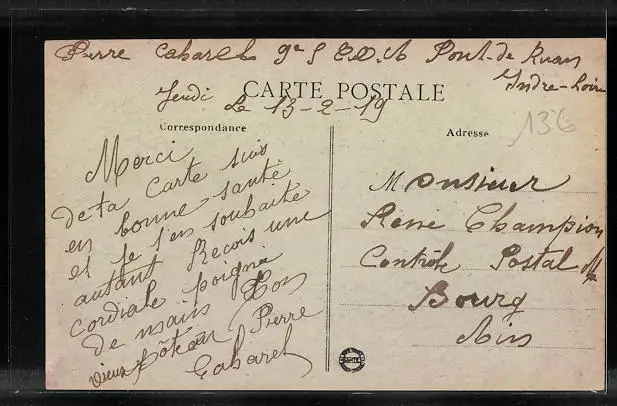 Pierre Cabarel 9e S C.O.A Pont-de Ruan
Indre-Loire
Jeudi
CARTE POSTALE
Le 13-2-19
136
Correspondance
Adresse
Merci
de ta Carte suis
en bonne santé
et je t'en souhaite
autant Recois une
cordiale poigné
de mains Ton
vieux pôteau Pierre
Cabarel
Monsieur
René Champion
Contrôle Postal
Bourg
Ain